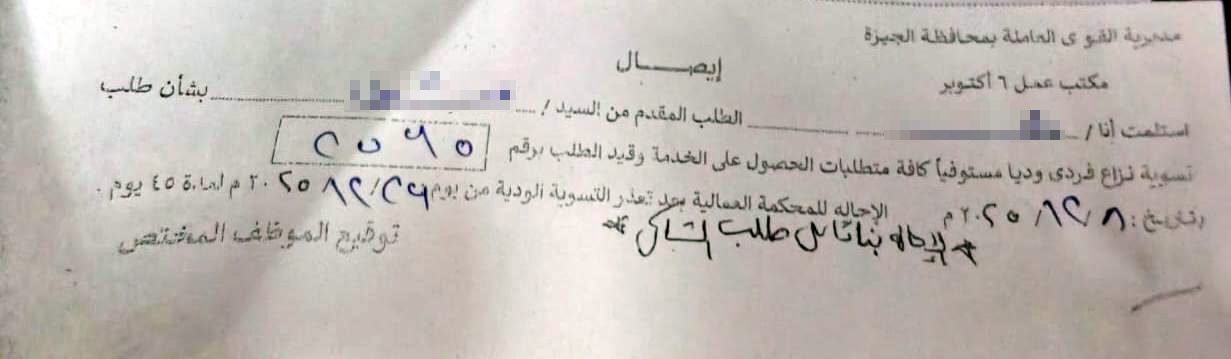 مديرية القوى العاملة بمحافظة الجيزة
مكتب عمل ٦ أكتوبر
إيصال
استلمت أنا / الطلب المقدم من السيد / بشأن طلب
تسوية نزاع فردى وديا مستوفياً كافة متطلبات الحصول على الخدمة وقيد الطلب برقم
بتاريخ : ٨ / ١٢ / ٢٠٢٥ م الإحاله للمحكمة العمالية بعد تعذر التسوية الودية من يوم / ١٢ / ٢٠٢٥ م لمدة ٤٥ يوم .
* الإحاله بناءً على طلب الشاكى *
توقيع الموظف المختص